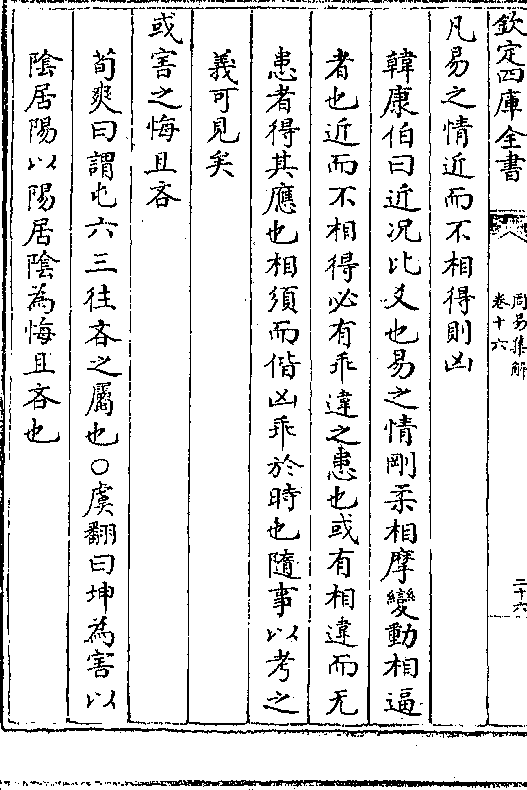 欽定四庫全書
周易集解
卷十六
二十六
凡易之情近而不相得則凶
韓康伯曰近况比爻也易之情剛柔相摩變動相逼
者也近而不相得必有乖違之患也或有相違而无
患者得其應也相須而偕凶乖於時也隨事以考之
義可見矣
或害之悔且吝
荀爽曰謂屯六三往吝之屬也○虞翻曰坤為害以
陰居陽以陽居陰為悔且吝也